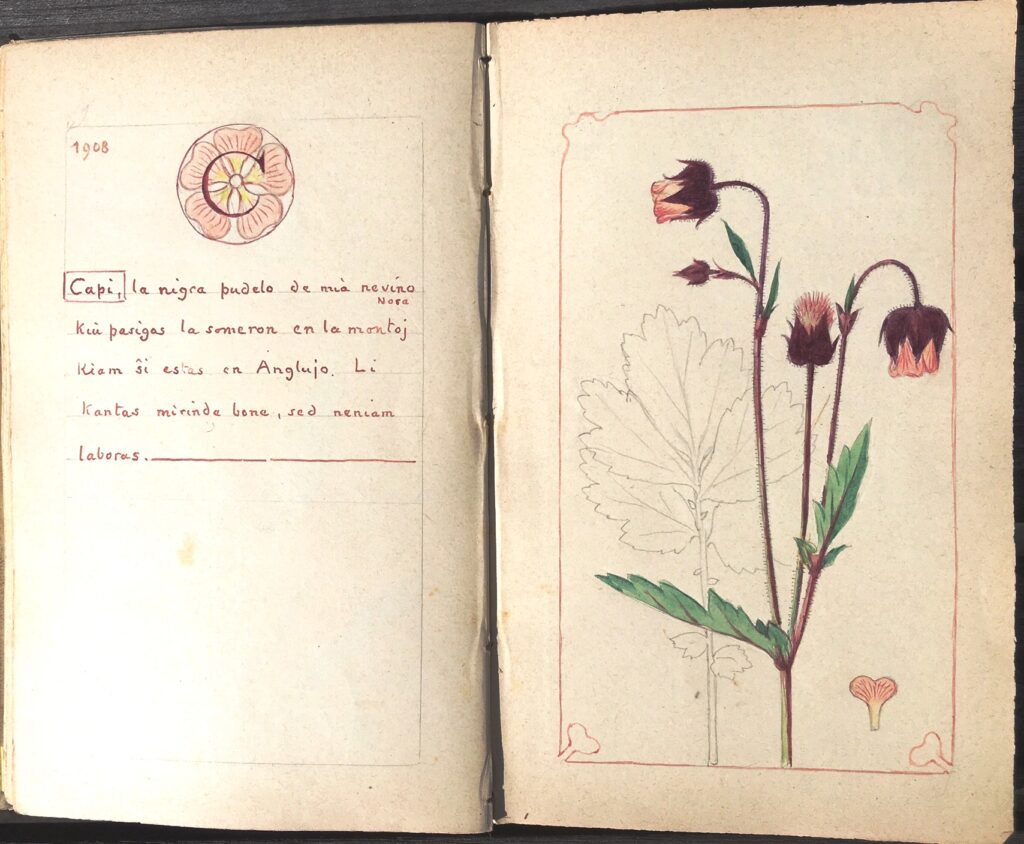 1908
C
Capi, la nigra pudelo de mia nevino
Nora
kiu pasigas la someron en la montoj
kiam ŝi estas en Anglujo. Li
kantas mirinda bone, sed neniam
laboras.